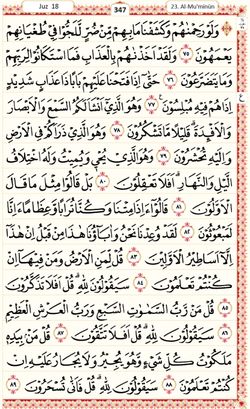 Juz 18
347
23. Al-Mu'minûn
وَلَوْ رَحِمْنَاهُمْ وَكَشَفْنَا مَا بِهِمْ مِنْ ضُرٍّ لَلَجُّوا فِي طُغْيَانِهِمْ
يَعْمَهُونَ ٧٥ وَلَقَدْ أَخَذْنَاهُمْ بِالْعَذَابِ فَمَا اسْتَكَانُوا لِرَبِّهِمْ
وَمَا يَتَضَرَّعُونَ ٧٦ حَتَّى إِذَا فَتَحْنَا عَلَيْهِمْ بَابًا ذَا عَذَابٍ شَدِيدٍ
إِذَا هُمْ فِيهِ مُبْلِسُونَ ٧٧ وَهُوَ الَّذِي أَنْشَأَ لَكُمُ السَّمْعَ وَالْأَبْصَارَ
وَالْأَفْئِدَةَ قَلِيلًا مَا تَشْكُرُونَ ٧٨ وَهُوَ الَّذِي ذَرَأَكُمْ فِي الْأَرْضِ
وَإِلَيْهِ تُحْشَرُونَ ٧٩ وَهُوَ الَّذِي يُحْيِي وَيُمِيتُ وَلَهُ اخْتِلَافُ
اللَّيْلِ وَالنَّهَارِ أَفَلَا تَعْقِلُونَ ٨٠ بَلْ قَالُوا مِثْلَ مَا قَالَ
الْأَوَّلُونَ ٨١ قَالُوا أَإِذَا مِتْنَا وَكُنَّا تُرَابًا وَعِظَامًا أَإِنَّا
لَمَبْعُوثُونَ ٨٢ لَقَدْ وُعِدْنَا نَحْنُ وَآبَاؤُنَا هَذَا مِنْ قَبْلُ إِنْ هَذَا
إِلَّا أَسَاطِيرُ الْأَوَّلِينَ ٨٣ قُلْ لِمَنِ الْأَرْضُ وَمَنْ فِيهَا إِنْ
كُنْتُمْ تَعْلَمُونَ ٨٤ سَيَقُولُونَ لِلَّهِ قُلْ أَفَلَا تَذَكَّرُونَ
٨٥ قُلْ مَنْ رَبُّ السَّمَاوَاتِ السَّبْعِ وَرَبُّ الْعَرْشِ الْعَظِيمِ
٨٦ سَيَقُولُونَ لِلَّهِ قُلْ أَفَلَا تَتَّقُونَ ٨٧ قُلْ مَنْ بِيَدِهِ
مَلَكُوتُ كُلِّ شَيْءٍ وَهُوَ يُجِيرُ وَلَا يُجَارُ عَلَيْهِ إِنْ
كُنْتُمْ تَعْلَمُونَ ٨٨ سَيَقُولُونَ لِلَّهِ قُلْ فَأَنَّى تُسْحَرُونَ ٨٩